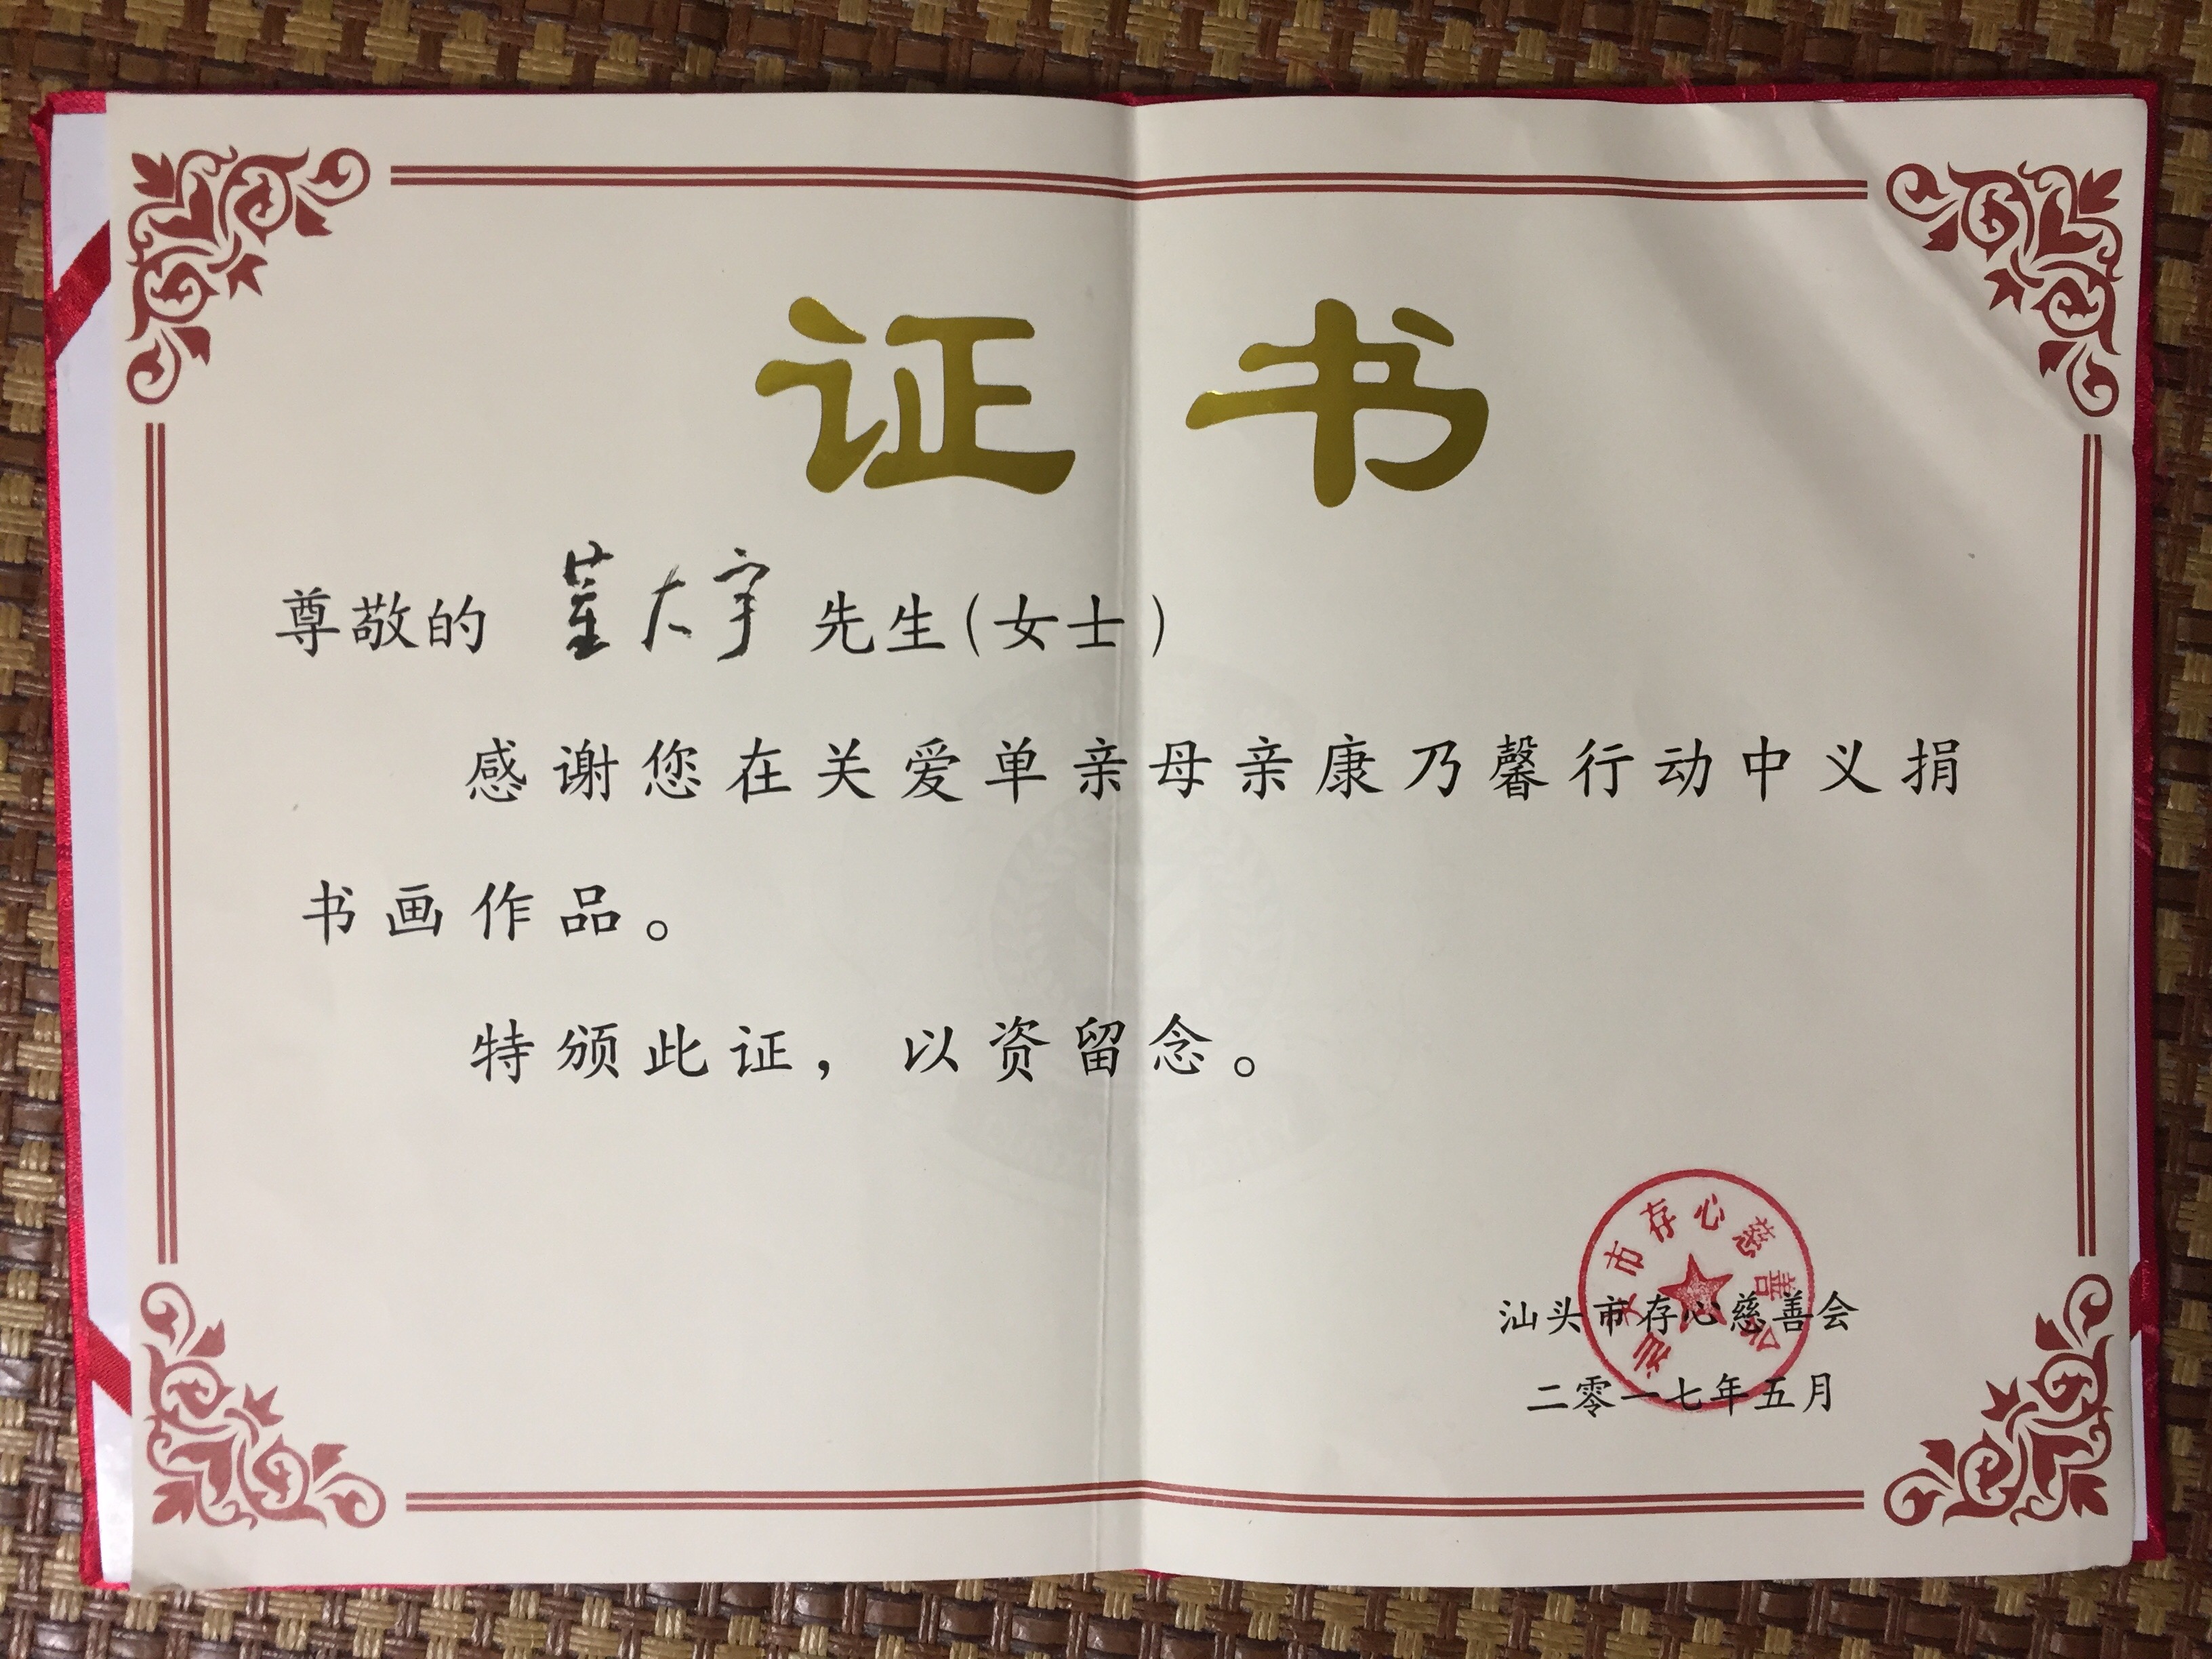 证书
尊敬的 董大宇 先生(女士)
感谢您在关爱单亲母亲康乃馨行动中义捐
书画作品。
特颁此证，以资留念。
汕头市存心慈善会
汕头市存心慈善会
二零一七年五月